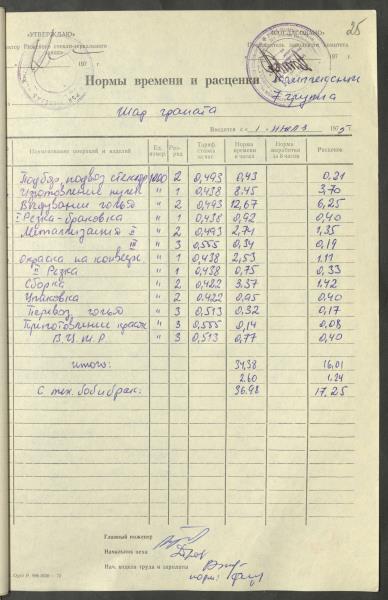 25
«УТВЕРЖДАЮ» «СОГЛАСОВАНО»
197 197
Нормы времени и расценки
7 группа
Шар граната
Вводится с « 1 » 1975
Наименование операций и изделий Ед. измер. Раз-ряд Тариф. ставка за час Норма времени в часах Норма выработки за 8 часов Расценок
Подбор, подвоз стеклодр. 1000 2 0,493 0,43 0.21
Изготовление пулек " 1 0,438 8.45 3,70
Выдувание голья " 2 0,493 12,67 6,25
I Резка-браковка " 1 0,438 0,92 0,40
Металлизация II " 2 0,493 2,74 1,35
III " 3 0,555 0,34 0,19
Окраска на конвейер. " 1 0,438 2,53 1.11
II Резка " 1 0,438 0,75 0,33
Сборка " 2 0,422 3.37 1.42
Упаковка " 2 0.422 0,95 0,40
Перевоз голья " 3 0,513 0,32 0,17
Приготовление красок " 3 0,555 0,14 0,08
В.Ц.М.Р " 3 0,513 0,77 0,40
итого: 34,38 16,01
2.60 1.24
С тех. бой и брак: 36.98 17,25
Главный инженер
Начальник цеха
Нач. отдела труда и зарплаты
норм: